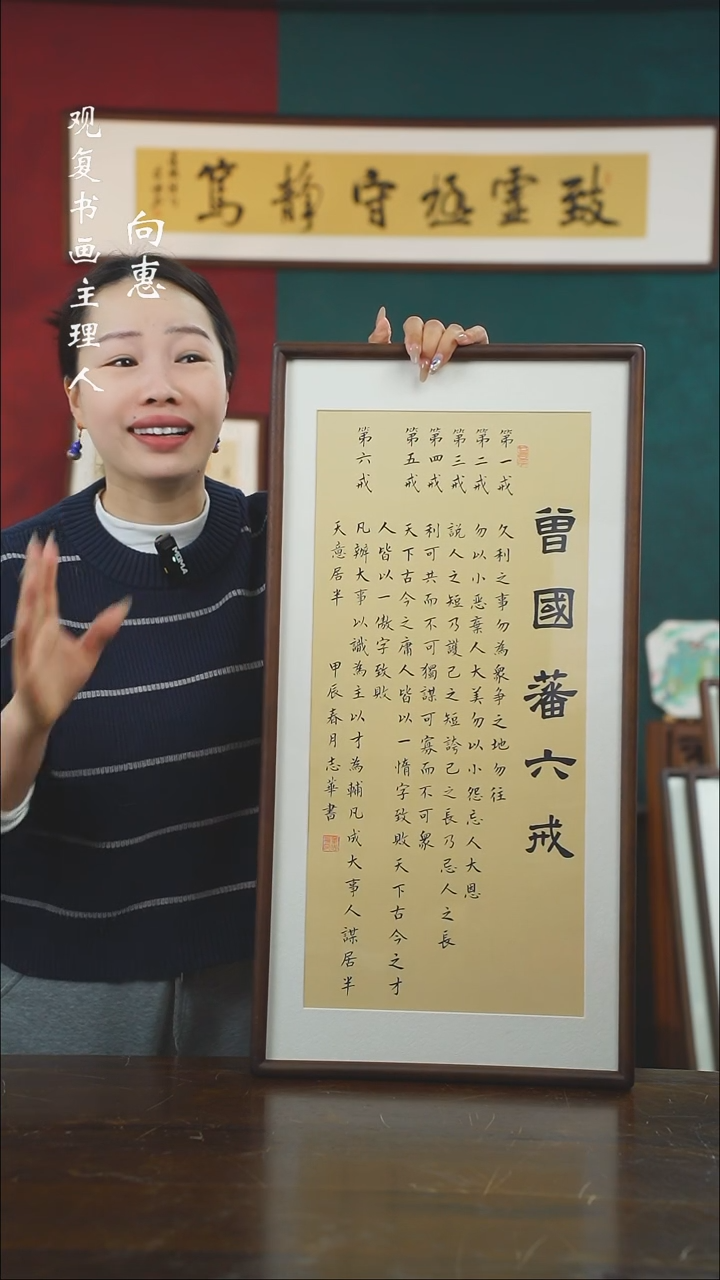 观复书画主理人
向惠
致虚極守静篤
曾國藩六戒
第一戒 久利之事勿為衆争之地勿往
第二戒 勿以小惡棄人大美勿以小怨忘人大恩
第三戒 説人之短乃護己之短誇己之長乃忌人之長
第四戒 利可共而不可獨謀可寡而不可衆
第五戒 天下古今之庸人皆以一惰字致敗天下古今之才
人皆以一傲字致敗
第六戒 凡辦大事以識為主以才為輔凡成大事人謀居半
天意居半 甲辰春月志華書